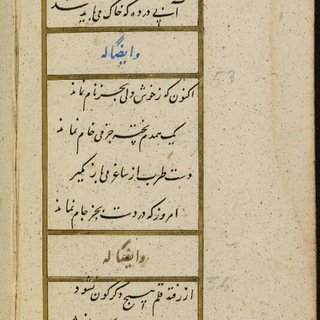 وایضاً له
53
اکنون که ز خوش دلی بجز نام نماند
یک همدم پخته جز می خام نماند
دست طرب از ساغر می باز مگیر
امروز که در دست بجز جام نماند
وایضاً له
54
از رفته قلم هیچ دگرگون نشود